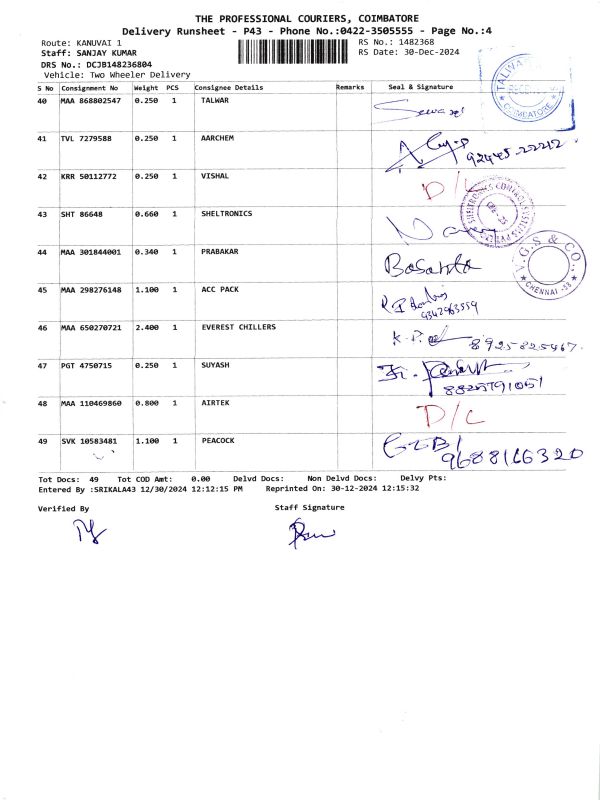 THE PROFESSIONAL COURIERS, COIMBATORE
Delivery Runsheet - P43 - Phone No.:0422-3505555 - Page No.:4
Route: KANUVAI 1 RS No.: 1482368
Staff: SANJAY KUMAR RS Date: 30-Dec-2024
DRS No.: DCJB148236804
Vehicle: Two Wheeler Delivery
S No Consignment No Weight PCS Consignee Details Remarks Seal & Signature
40 MAA 868802547 0.250 1 TALWAR
COIMBATORE
41 TVL 7279588 0.250 1 AARCHEM
92445-22212
42 KRR 50112772 0.250 1 VISHAL D/L
SHELTRONICS CONTROL SYSTEMS
43 SHT 86648 0.660 1 SHELTRONICS
V.G.S & CO.
CHENNAI -58
44 MAA 301844001 0.340 1 PRABAKAR Basanta
45 MAA 298276148 1.100 1 ACC PACK
9342963559
46 MAA 650270721 2.400 1 EVEREST CHILLERS 8925825467.
47 PGT 4750715 0.250 1 SUYASH
8825791051
48 MAA 110469860 0.800 1 AIRTEK D/L
49 SVK 10583481 1.100 1 PEACOCK
9688166320
Tot Docs: 49 Tot COD Amt: 0.00 Delvd Docs: Non Delvd Docs: Delvy Pts:
Entered By :SRIKALA43 12/30/2024 12:12:15 PM Reprinted On: 30-12-2024 12:15:32
Verified By Staff Signature